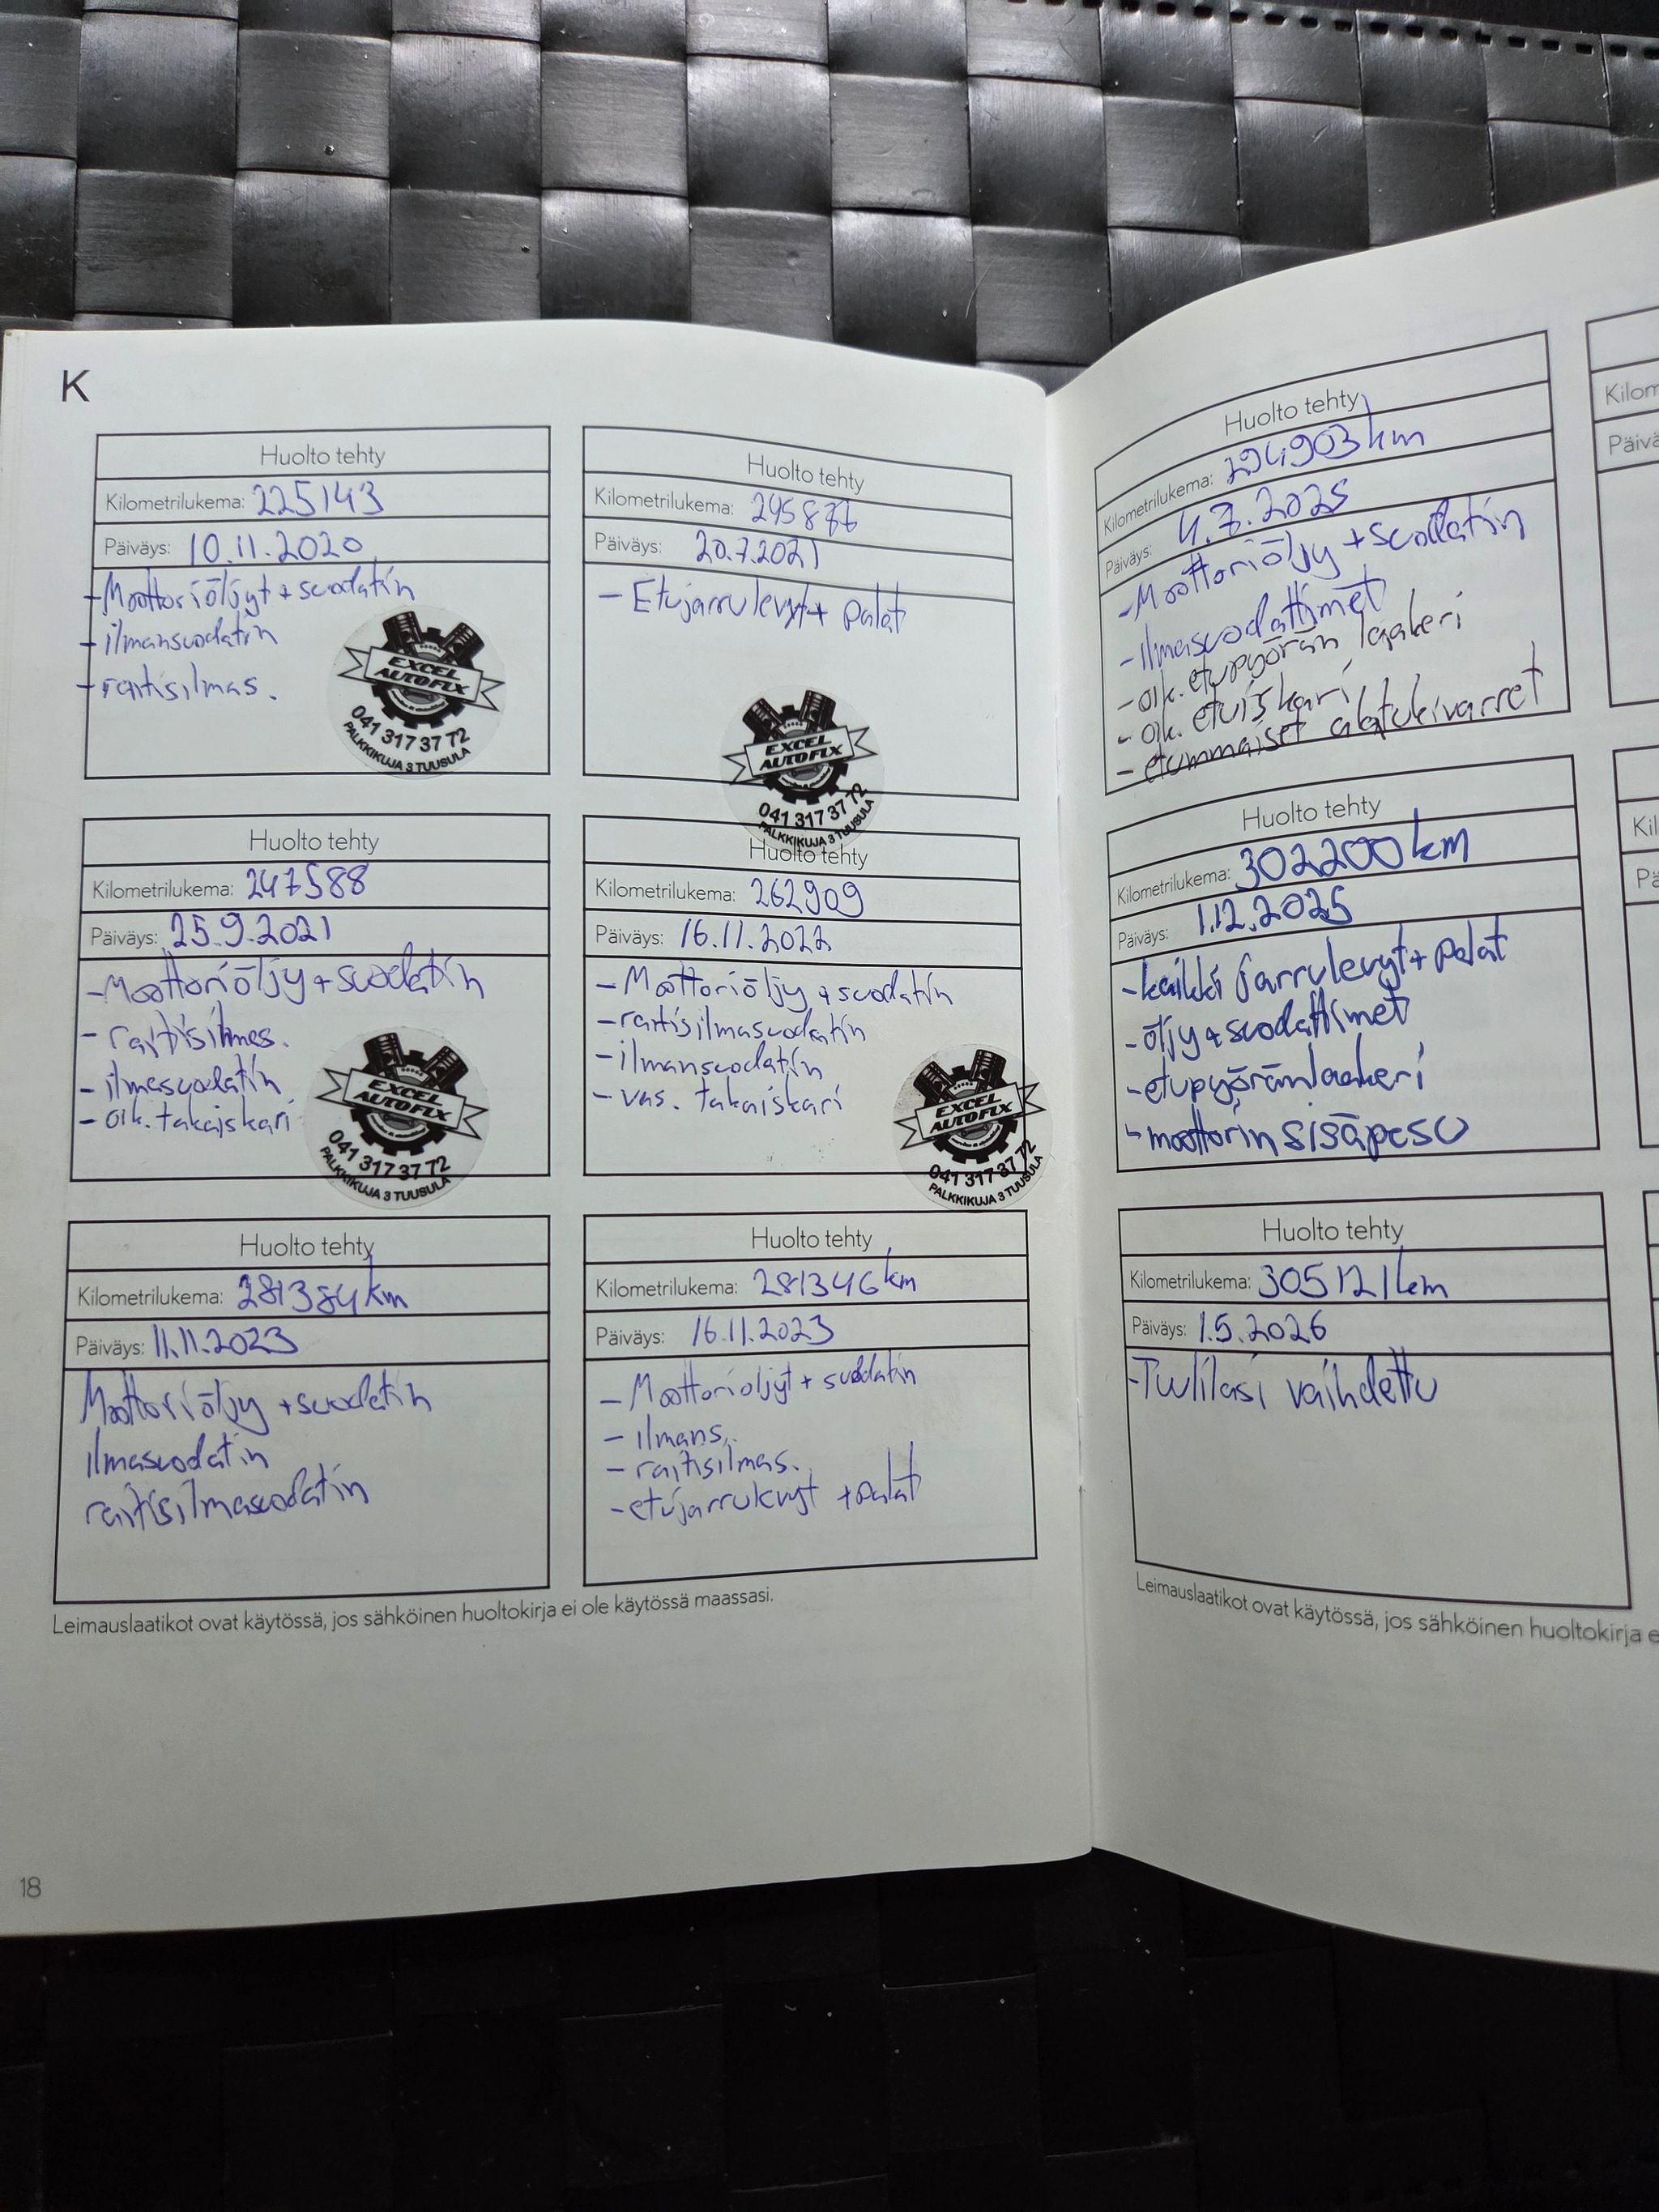 K
Huolto tehty
Kilometrilukema: 225143
Päiväys: 10.11.2020
-Moottoriöljyt + suodatin
- ilmansuodatin
- raitisilmas.
EXCEL
AUTOFIX
041 317 37 72
PALKKIKUJA 3 TUUSULA
Huolto tehty
Kilometrilukema: 245877
Päiväys: 20.7.2021
- Etujarrulevyt+ palat
EXCEL
AUTOFIX
041 317 37 72
PALKKIKUJA 3 TUUSULA
Huolto tehty
Kilometrilukema: 247588
Päiväys: 25.9.2021
-Moottoriöljy + suodatin
- raitisilmas.
- ilmasuodatin
- oik. takaiskari
EXCEL
AUTOFIX
041 317 37 72
PALKKIKUJA 3 TUUSULA
Huolto tehty
Kilometrilukema: 262909
Päiväys: 16.11.2022
- Moottoriöljy + suodatin
-raitisilmasuodatin
-ilmansuodatin
- vas. takaiskari
EXCEL
AUTOFIX
041 317 37 72
PALKKIKUJA 3 TUUSULA
Huolto tehty
Kilometrilukema: 281384km
Päiväys: 11.11.2023
Moottoriöljy +suodatin
ilmasuodatin
raitisilmasuodatin
Huolto tehty
Kilometrilukema: 281346km
Päiväys: 16.11.2023
- Moottorioljyt + suodatin
- ilmans.
- raitisilmas.
-etujarrulevyt +palat
Leimauslaatikot ovat käytössä, jos sähköinen huoltokirja ei ole käytössä maassasi.
18
Huolto tehty
Kilometrilukema: 294903km
Päiväys: 4.7.2025
-Moottoriöljy +suodatin
-ilmasuodattimet
-oik. etupyörän laakeri
- oik. etuiskari
- etummaiset alatukivarret
Huolto tehty
Kilometrilukema: 302200km
Päiväys: 1.12.2025
-kaikki jarrulevyt+ palat
-öljy + suodattimet
-etupyöränlaakeri
-moottorin sisäpesu
Huolto tehty
Kilometrilukema: 305121km
Päiväys: 1.5.2026
-Tuulilasi vaihdettu
Leimauslaatikot ovat käytössä, jos sähköinen huoltokirja e
Kilom
Päivä
Kil
Pä